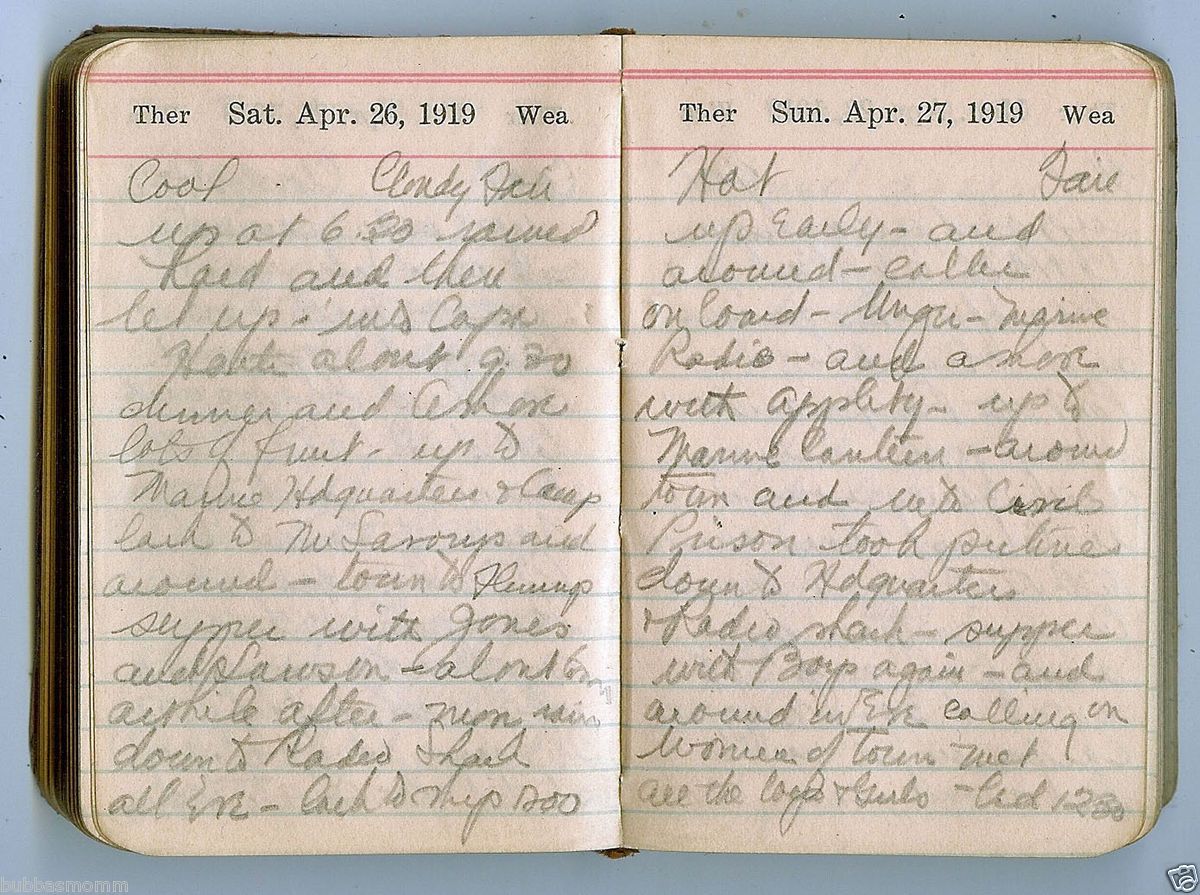 Ther Sat. Apr. 26, 1919 Wea
Cool Cloudy Fair
up at 6.30 rained
hard and then
let up - into Cape
about 9.30
dinner and ashore
lots of fruit - up to
Marine Hdquarters & Camp
back to and
around - town to
supper with Jones
and Lawson - about
awhile after - more rain
down to Radio Shack
all Eve - back to ship 1200
Ther Sun. Apr. 27, 1919 Wea
Hot Fair
up Early - and
around - Caller
on board - Unger - Marine
Radio - and ashore
with - up to
Marine Canteen - around
town and into Civil
Prison took picture
down to Hdquarters
& Radio shack - supper
with Boys again - and
around in Eve calling on
Women of town met
all the boys & Girls - bed 1230
bubbasmomm